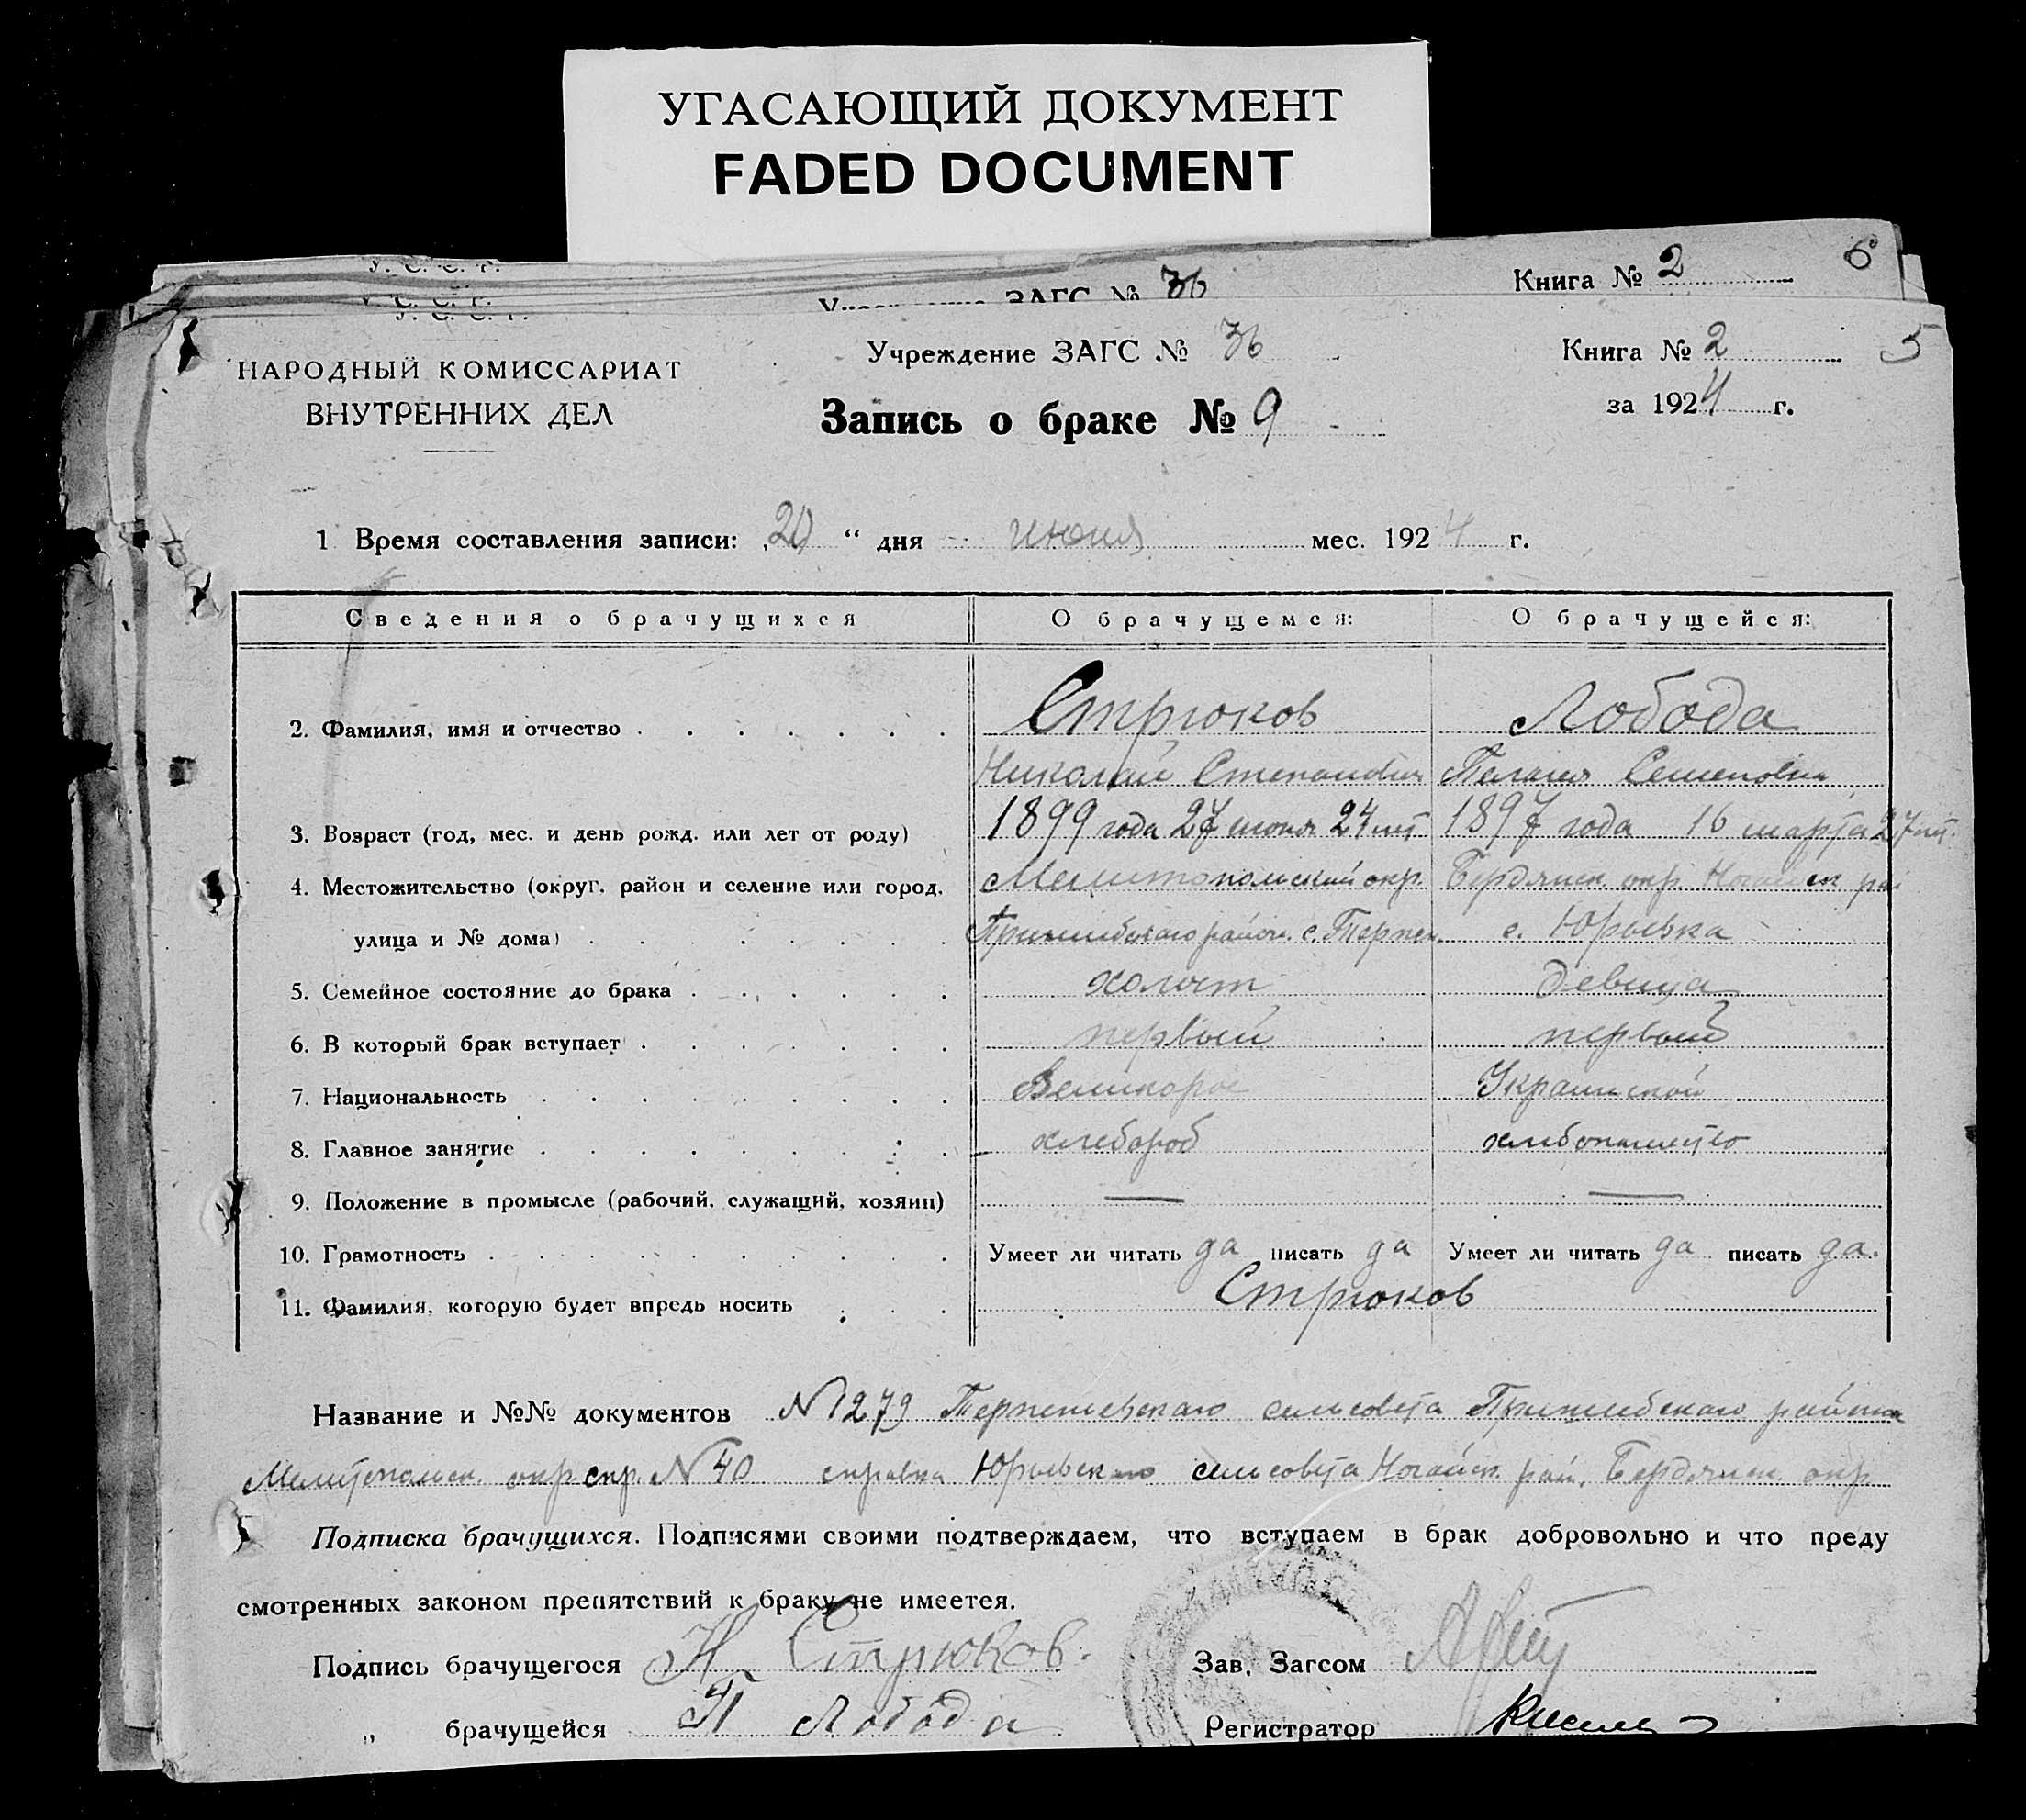 УГАСАЮЩИЙ ДОКУМЕНТ
FADED DOCUMENT
Книга № 2
6
ЗАГС № 36
НАРОДНЫЙ КОМИССАРИАТ
ВНУТРЕННИХ ДЕЛ
Учреждение ЗАГС № 36
Книга № 2
5
Запись о браке № 9
за 1924 г.
1 Время составления записи: " дня июня мес. 1924 г.
Сведения о брачущихся О брачущемся: О брачущейся:
2. Фамилия, имя и отчество Стрюков Лобода
Николай Степанович Пелагия Семеновна
3. Возраст (год, мес. и день рожд. или лет от роду) 1899 года 27 июня 24 лет 1897 года 16 марта 27 лет.
4. Местожительство (округ, район и селение или город, Мелитопольский окр. Бердянск. окр. Ногайск рай
улица и № дома) Пришибского район. с. Терпен. с. Юрьевка
5. Семейное состояние до брака холост девица
6. В который брак вступает первый первый
7. Национальность Великорос Украинской
8. Главное занятие хлебороб хлебопашество
9. Положение в промысле (рабочий, служащий, хозяин) — —
10. Грамотность Умеет ли читать да писать да Умеет ли читать да писать да.
11. Фамилия, которую будет впредь носить Стрюков
Название и №№ документов N 1279 Терпеньевского сельсовета Пришибского района
Мелитопольск. окр. спр. N 40 справка Юрьевского сельсовета Ногайск. рай. Бердянск окр
Подписка брачущихся. Подписями своими подтверждаем, что вступаем в брак добровольно и что преду
смотренных законом препятствий к браку не имеется.
Подпись брачущегося Н Стрюков. Зав. Загсом
„ брачущейся П Лобода Регистратор